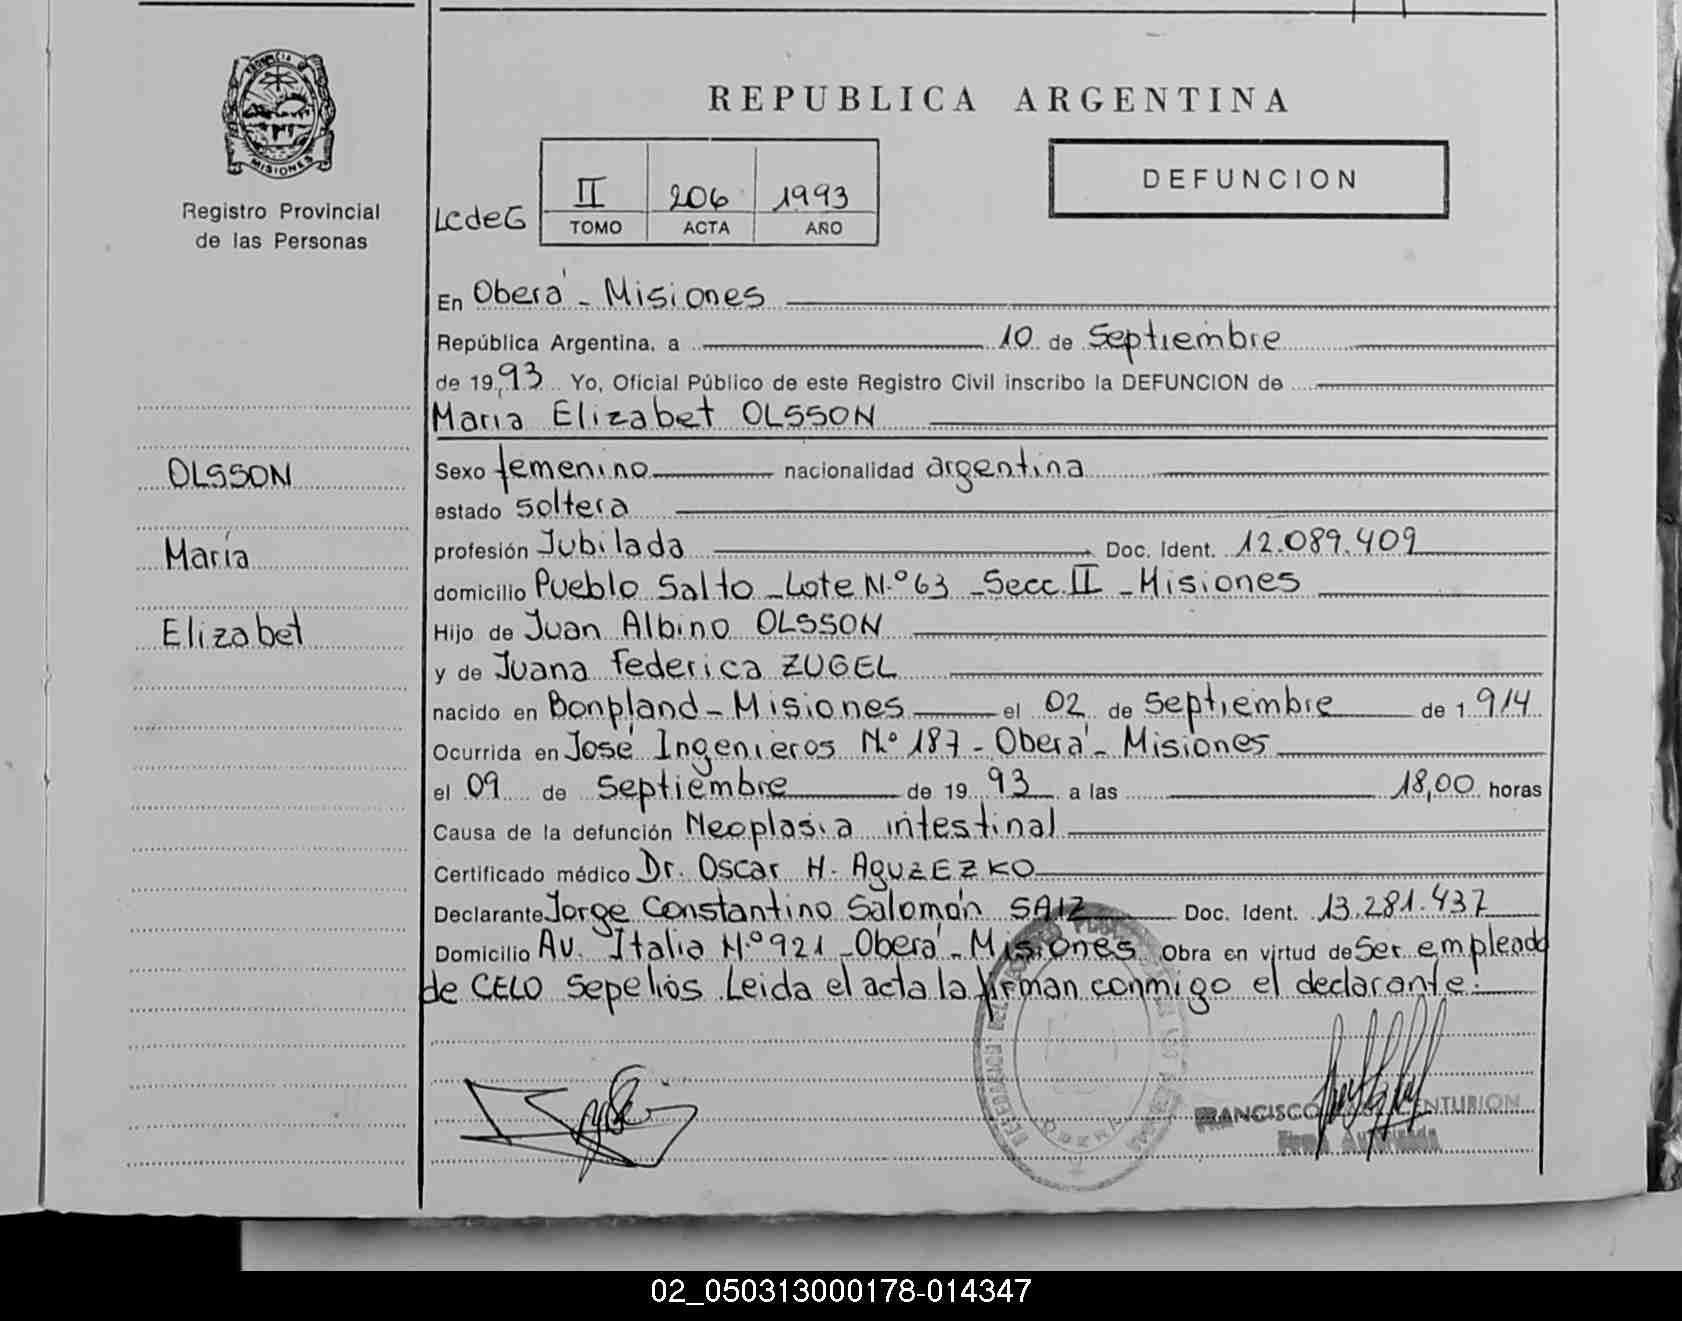 REPUBLICA ARGENTINA
MISIONES
Registro Provincial
de las Personas
DEFUNCION
LCdeG
II 206 1993
TOMO ACTA AÑO
En Oberá - Misiones
República Argentina, a 10 de Septiembre
de 1993 Yo, Oficial Público de este Registro Civil inscribo la DEFUNCION de
María Elizabet OLSSON
OLSSON
María
Elizabet
Sexo femenino nacionalidad argentina
estado soltera
profesión Jubilada Doc. Ident. 12.089.409
domicilio Pueblo Salto - Lote N.º 63 - Secc. II - Misiones
Hijo de Juan Albino OLSSON
y de Juana Federica ZUGEL
nacido en Bonpland - Misiones el 02 de Septiembre de 1914
Ocurrida en José Ingenieros N.º 187 - Oberá - Misiones
el 09 de Septiembre de 1993 a las 18,00 horas
Causa de la defunción Neoplasia intestinal
Certificado médico Dr. Oscar H. AGUZEZKO
Declarante Jorge Constantino Salomón SAIZ Doc. Ident. 13.281.437
Domicilio Av. Italia N.º 921 - Oberá - Misiones Obra en virtud de Ser empleado
de CELO Sepelios. Leida el acta la firman conmigo el declarante.
FRANCISCO CENTURION
02_050313000178-014347